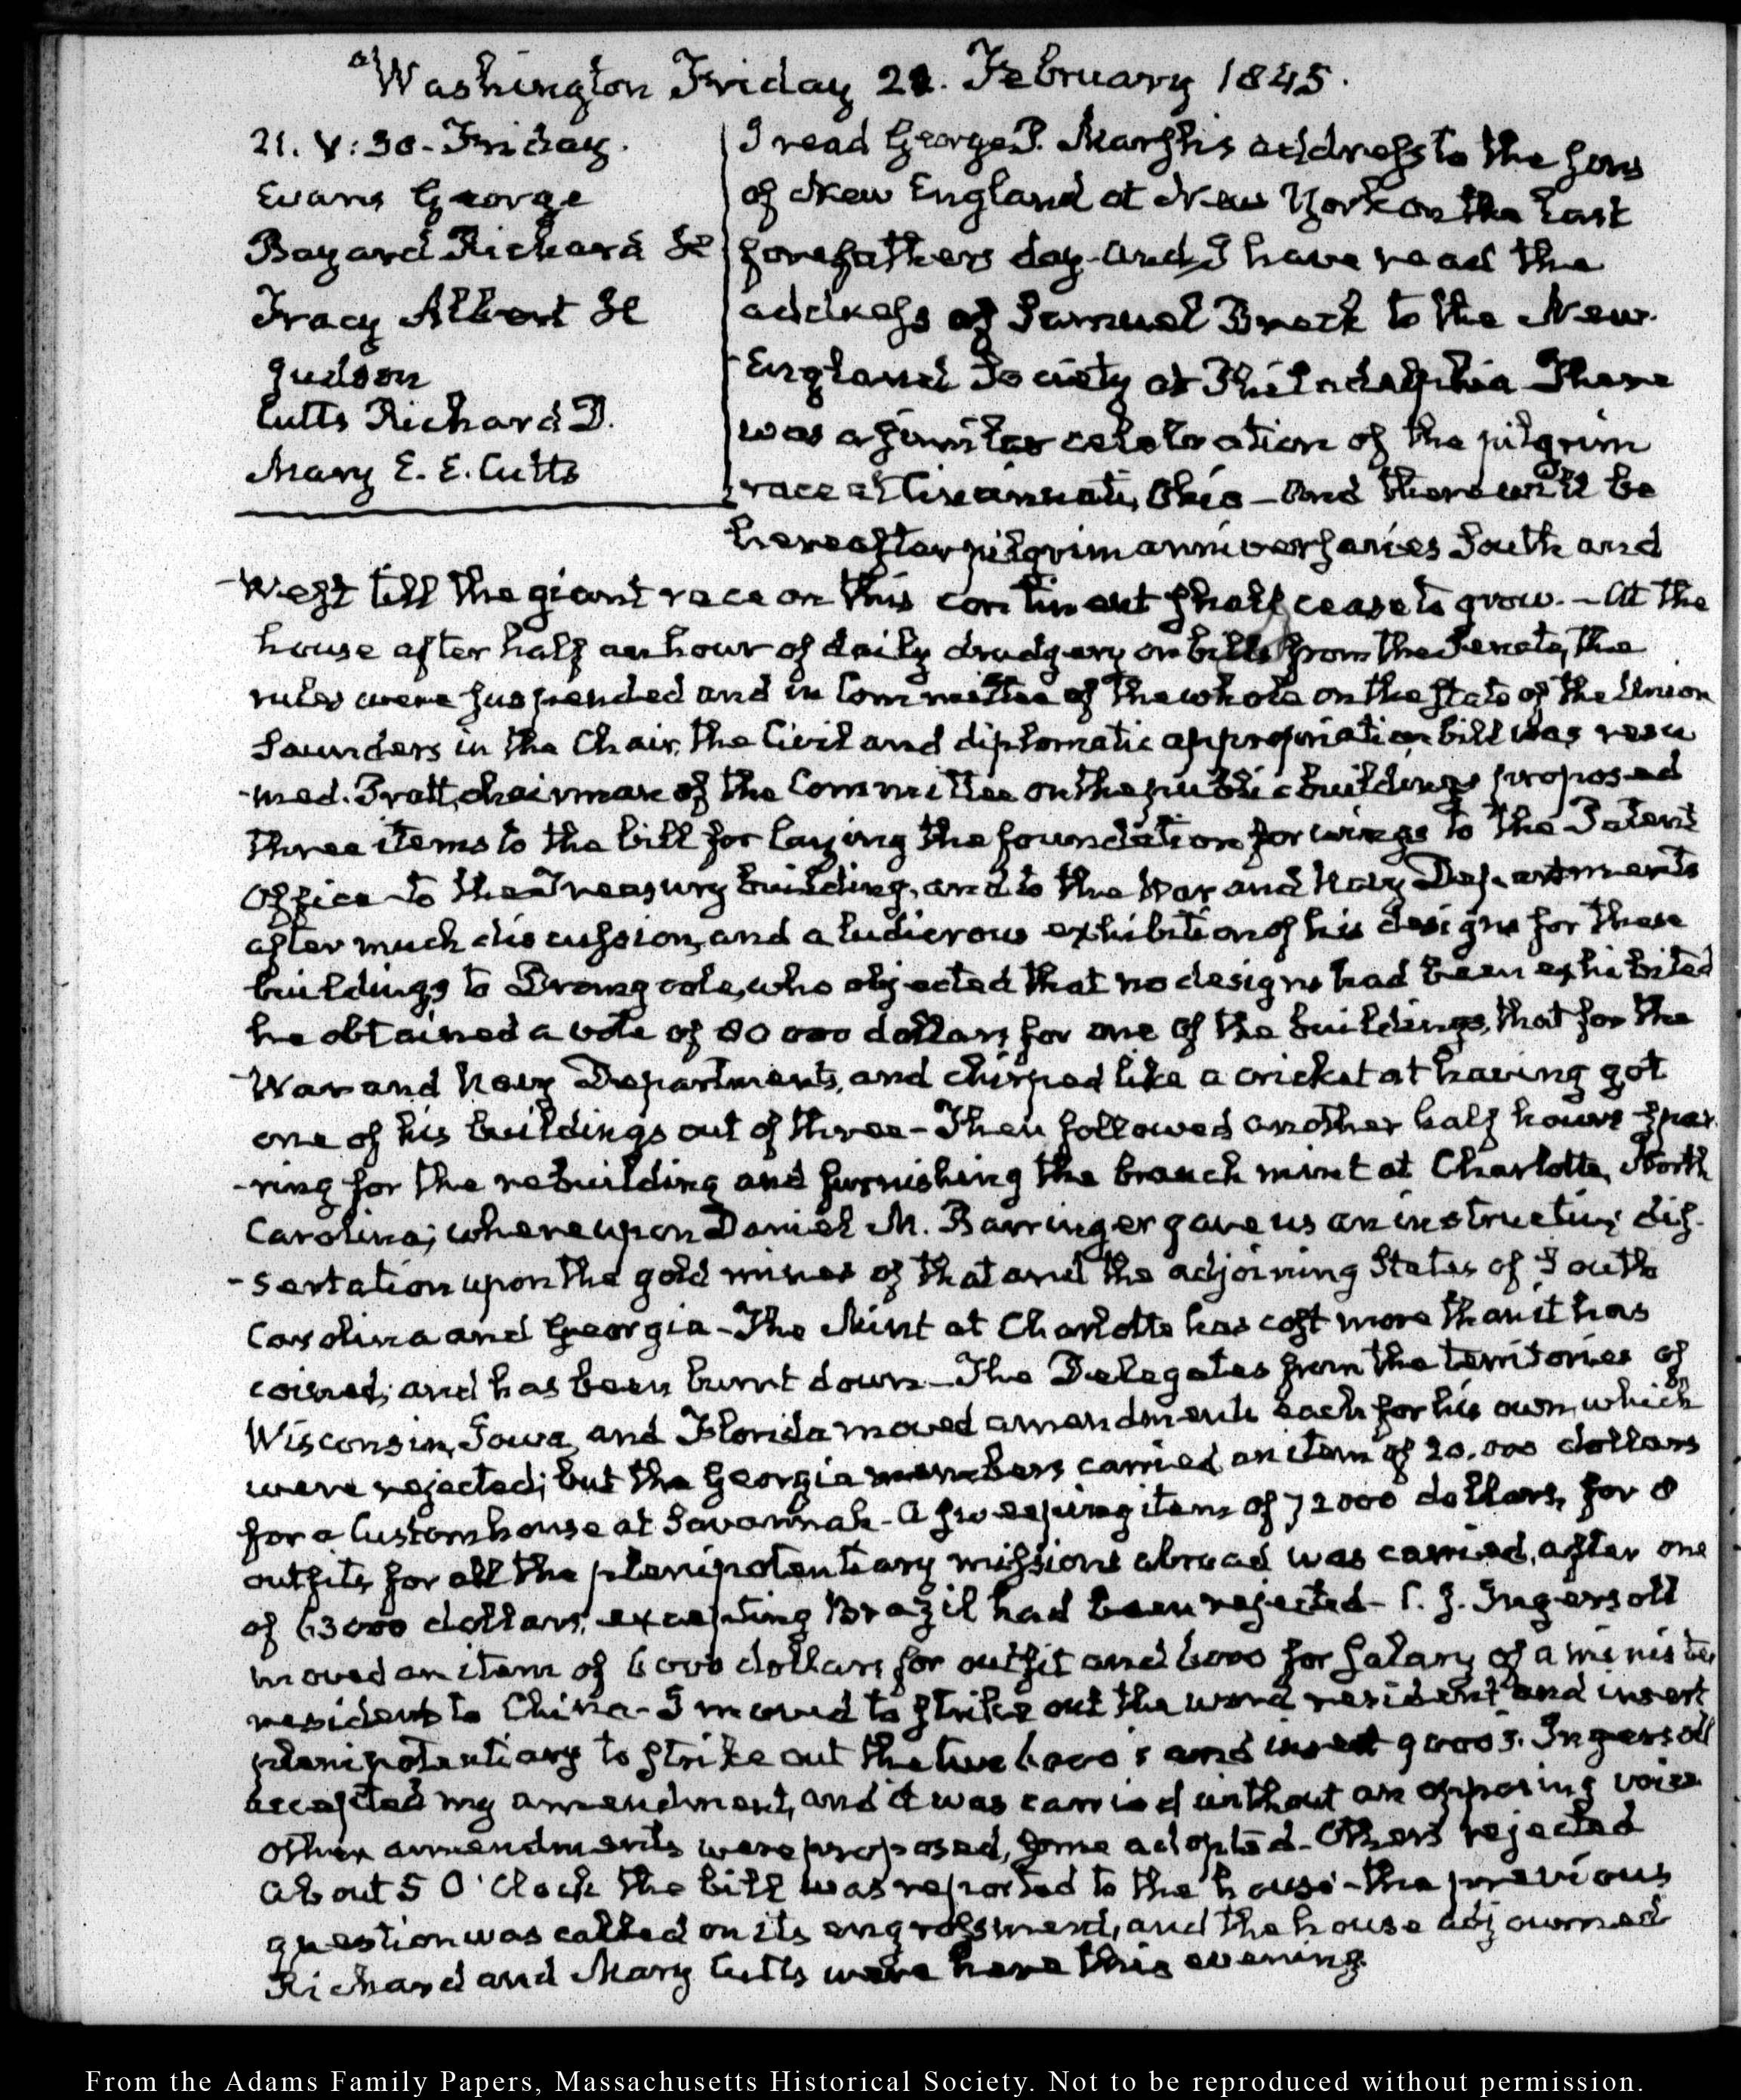 Washington Friday 21. February 1845.
21. V:30. Friday.
Evans George
Bayard Richard H
Tracy Albert H
Judson
Cutts Richard D.
Mary E. E. Cutts
I read George P. Marsh's address to the sons
of New England at New York on the last
forefathers day and I have read the
address of Samuel Breck to the New-
England Society at Philadelphia There
was a similar celebration of the pilgrim
race at Cincinnati, Ohio - And there will be
hereafter pilgrim anniversaries South and
West till the giant race on this continent shall cease to grow. - At the
house after half an hour of daily drudgery on bills from the Senate, the
rules were suspended and in Committee of the whole on the State of the Union
Saunders in the Chair, the Civil and diplomatic appropriation bill was resu
-med. Pratt, chairman of the Committee on the public buildings proposed
three items to the bill for laying the foundation for wings to the Patent
Office to the Treasury building, and to the War and Navy Departments
after much discussion, and a ludicrous exhibition of his designs for these
buildings to Dromgoole, who objected that no designs had been exhibited
he obtained a vote of 80 000 dollars for one of the buildings, that for the
War and Navy Departments, and chirped like a cricket at having got
one of his buildings out of three - Then followed another half hours spar
-ring for the rebuilding and furnishing the branch mint at Charlotte, North
Carolina; whereupon Daniel M. Barringer gave us an instructive dis-
-sertation upon the gold mines of that and the adjoining States of South
Carolina and Georgia - The Mint at Charlotte has cost more than it has
coined; and has been burnt down - The Delegates from the territories of
Wisconsin, Iowa, and Florida moved amendments each for his own, which
were rejected; but the Georgia members carried an item of 20.000 dollars
for a Customhouse at Savannah - A sweeping item of 72000 dollars, for 8
outfits for all the plenipotentiary missions abroad was carried, after one
of 63000 dollars, excepting Brazil had been rejected - C. J. Ingersoll
moved an item of 6000 dollars for outfit and 6000 for salary of a minister
resident to China - I moved to strike out the word resident and insert
plenipotentiary to strike out the two 6000's and insert 9000s. Ingersoll
accepted my amendment, and it was carried without an opposing voice
other amendments were proposed, some adopted - Others rejected
About 5 O'Clock the bill was reported to the house - the previous
question was called on its engrossment, and the house adjourned
Richard and Mary Cutts were here this evening.
From the Adams Family Papers, Massachusetts Historical Society. Not to be reproduced without permission.